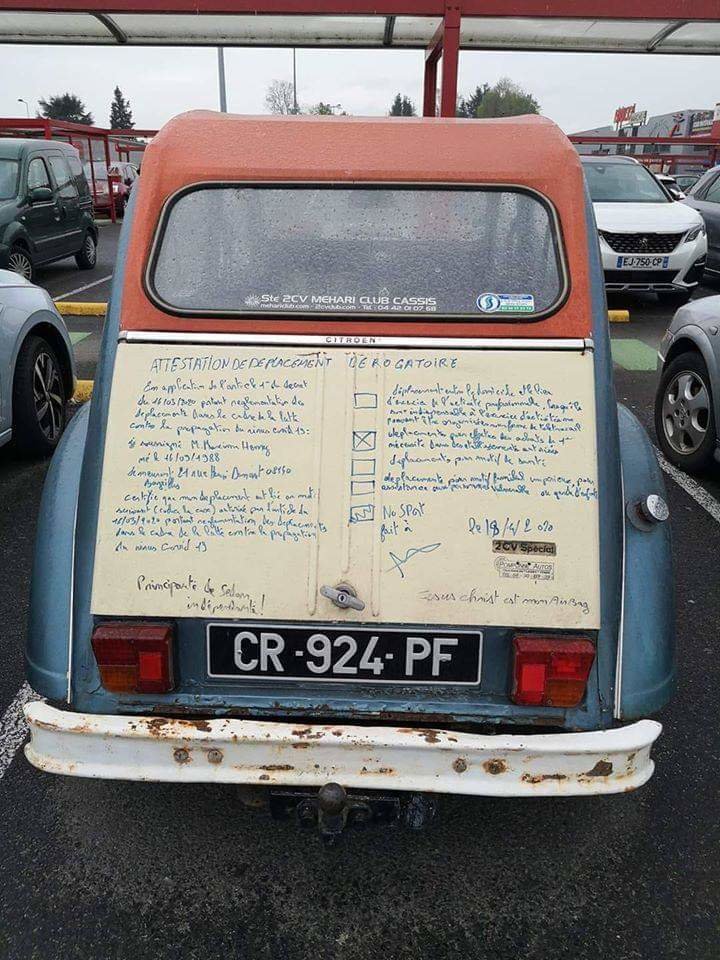 Sté 2CV MEHARI CLUB CASSIS
mehariclub.com - 2cvclub.com - Tel: 04 42 01 07 68
CITROËN
ATTESTATION DE DEPLACEMENT DEROGATOIRE
En application de l'article 1er du decret
du 16/03/2020 portant reglementation des
deplacements dans le cadre de la lutte
contre la propagation du virus covid 19:
Je soussigné M. Maxime Henry
né le 16/09/1988
demeurant 21 rue Henri Dunant 08150
certifie que mon deplacement est lié au motif
suivant (cocher la case) autorisé par l'article du
16/03/2020 portant reglementation des deplacements
dans le cadre de la lutte contre la propagation
du virus Covid 19
Principauté de Sedan
indépendante!
deplacements entre le domicile et lieu
d'exercice de l'activité professionnelle, lorsqu'ils
sont indispensables à l'exercice d'activités
deplacements pour effectuer des achats de 1ere
nécessité dans des établissements autorisés
deplacements pour motif de santé
deplacements pour motif familial impérieux, pour
assistance aux personnes vulnerable ou garde d'enfants
NO SPORT
fait à
le 18/4/2020
2CV Spécial
POMPONNE AUTOS
Jesus christ est mon AirBag
CR-924-PF
EJ-750-CP